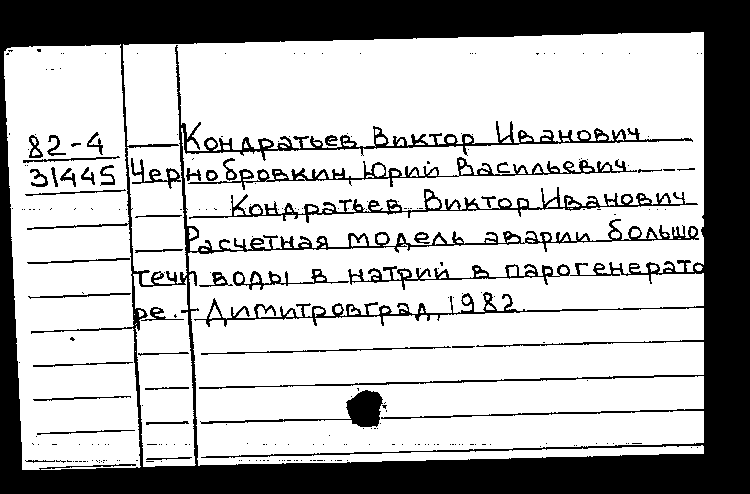 Кондратьев, Виктор Иванович
82-4
31445
Чернобровкин, Юрий Васильевич
Кондратьев, Виктор Иванович
Расчетная модель аварии большо
течи воды в натрий в парогенерато
ре. – Димитровград, 1982